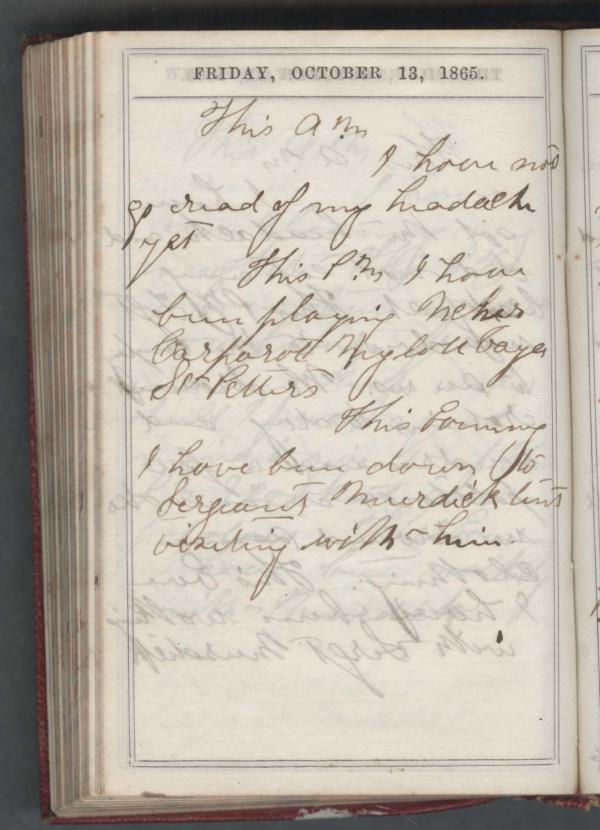 FRIDAY, OCTOBER 13, 1865.
This A M
I have not
go read of my headach
yet
This P M I have
bun playing

St Petters
This Evening
I have bun down to
Sergeant Murdick tint
visiting with him.